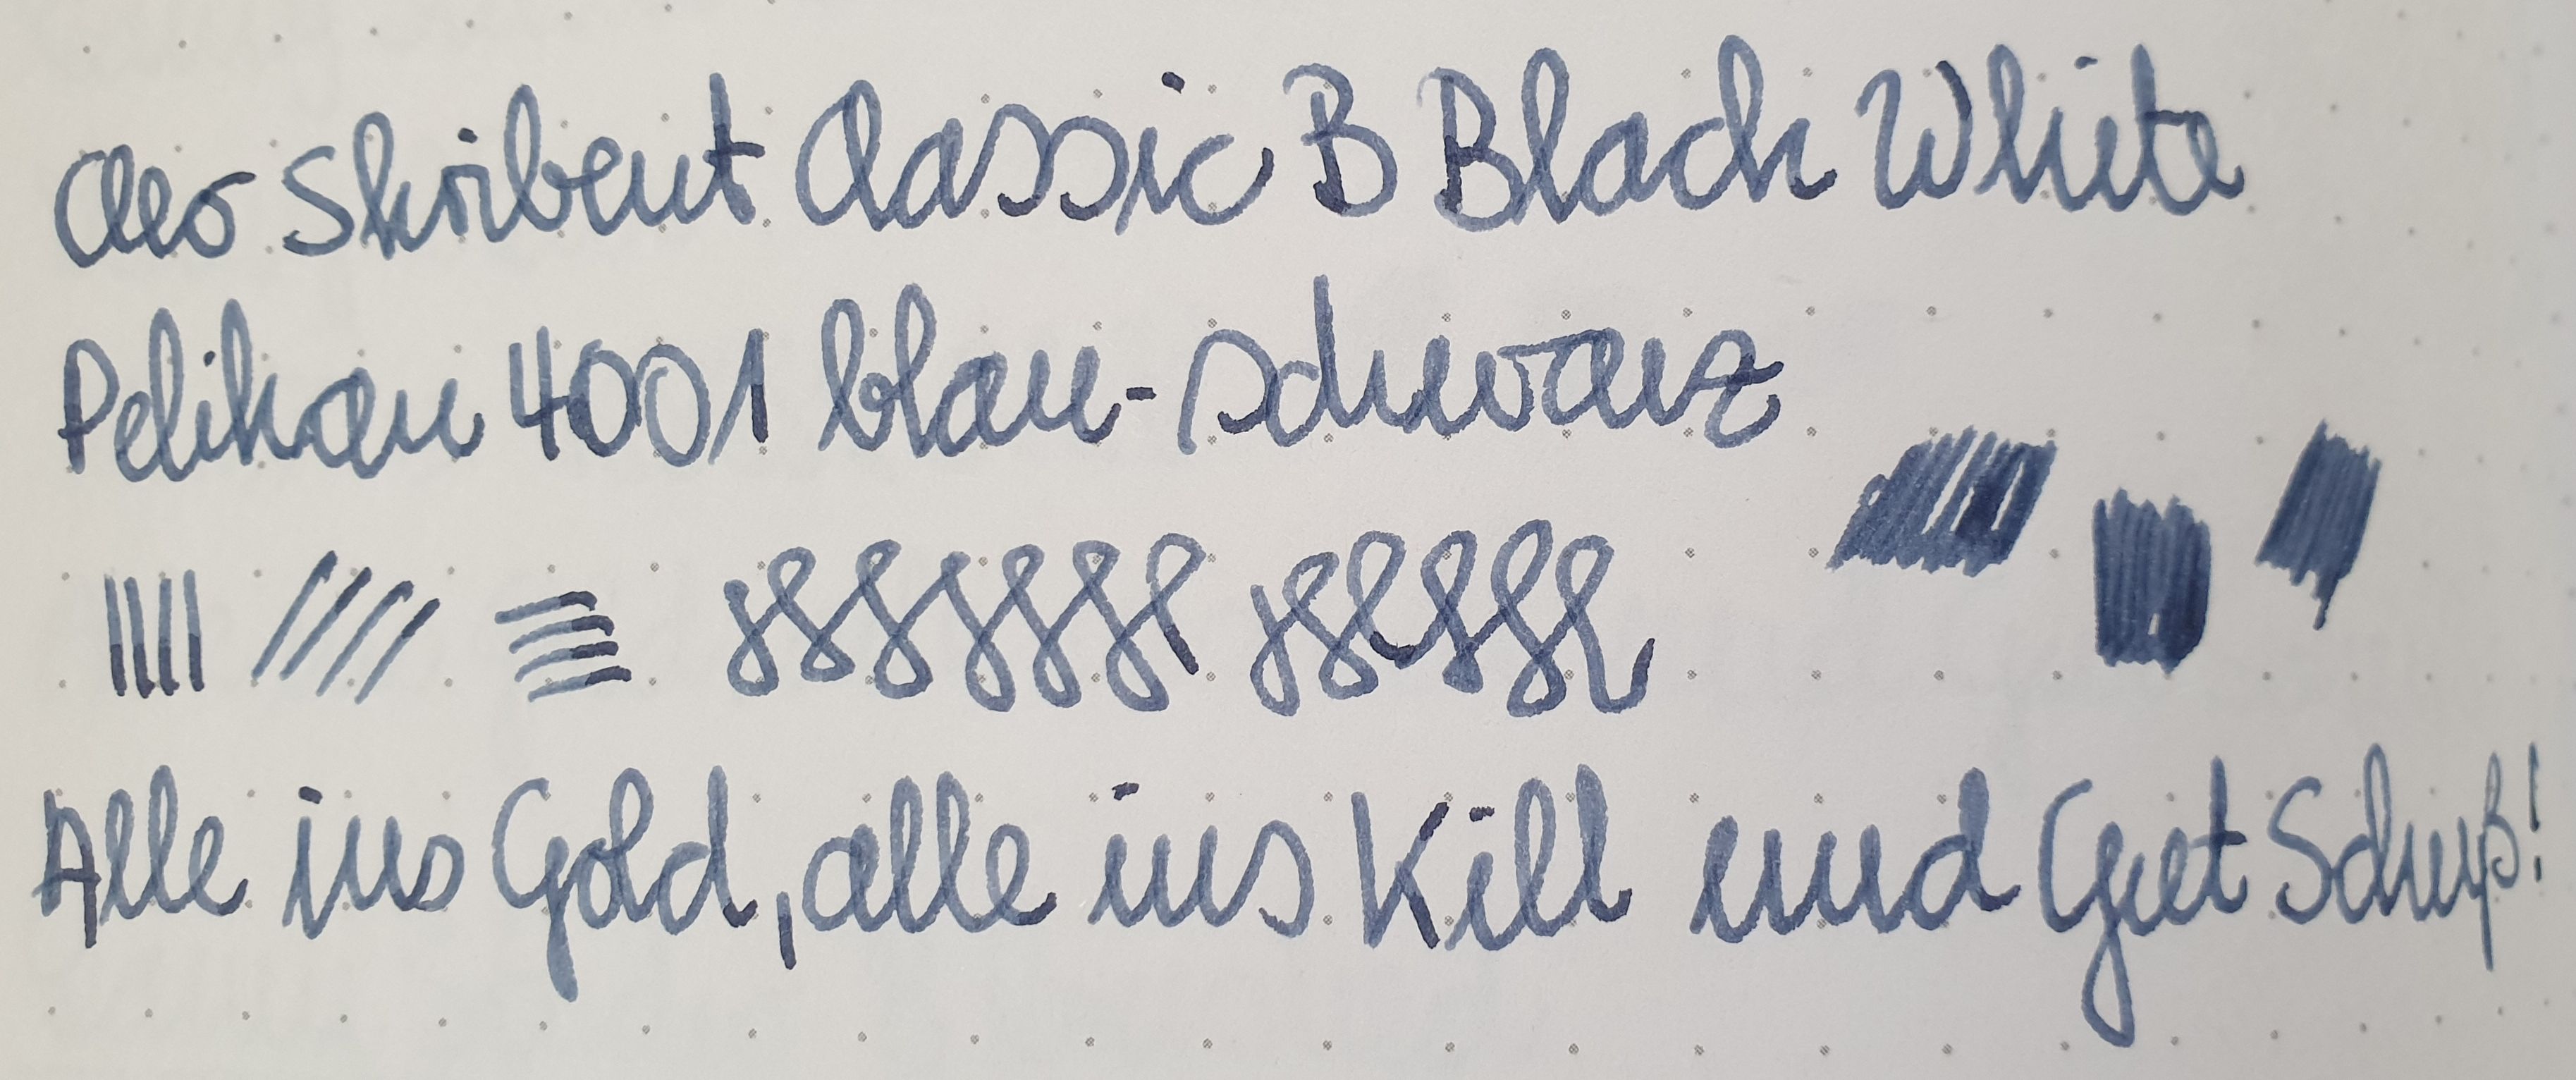 Cleo Skribent Classic B Black White
Pelikan 4001 blau-schwarz
Alle ins Gold, alle ins Kill und Gut Schuß!